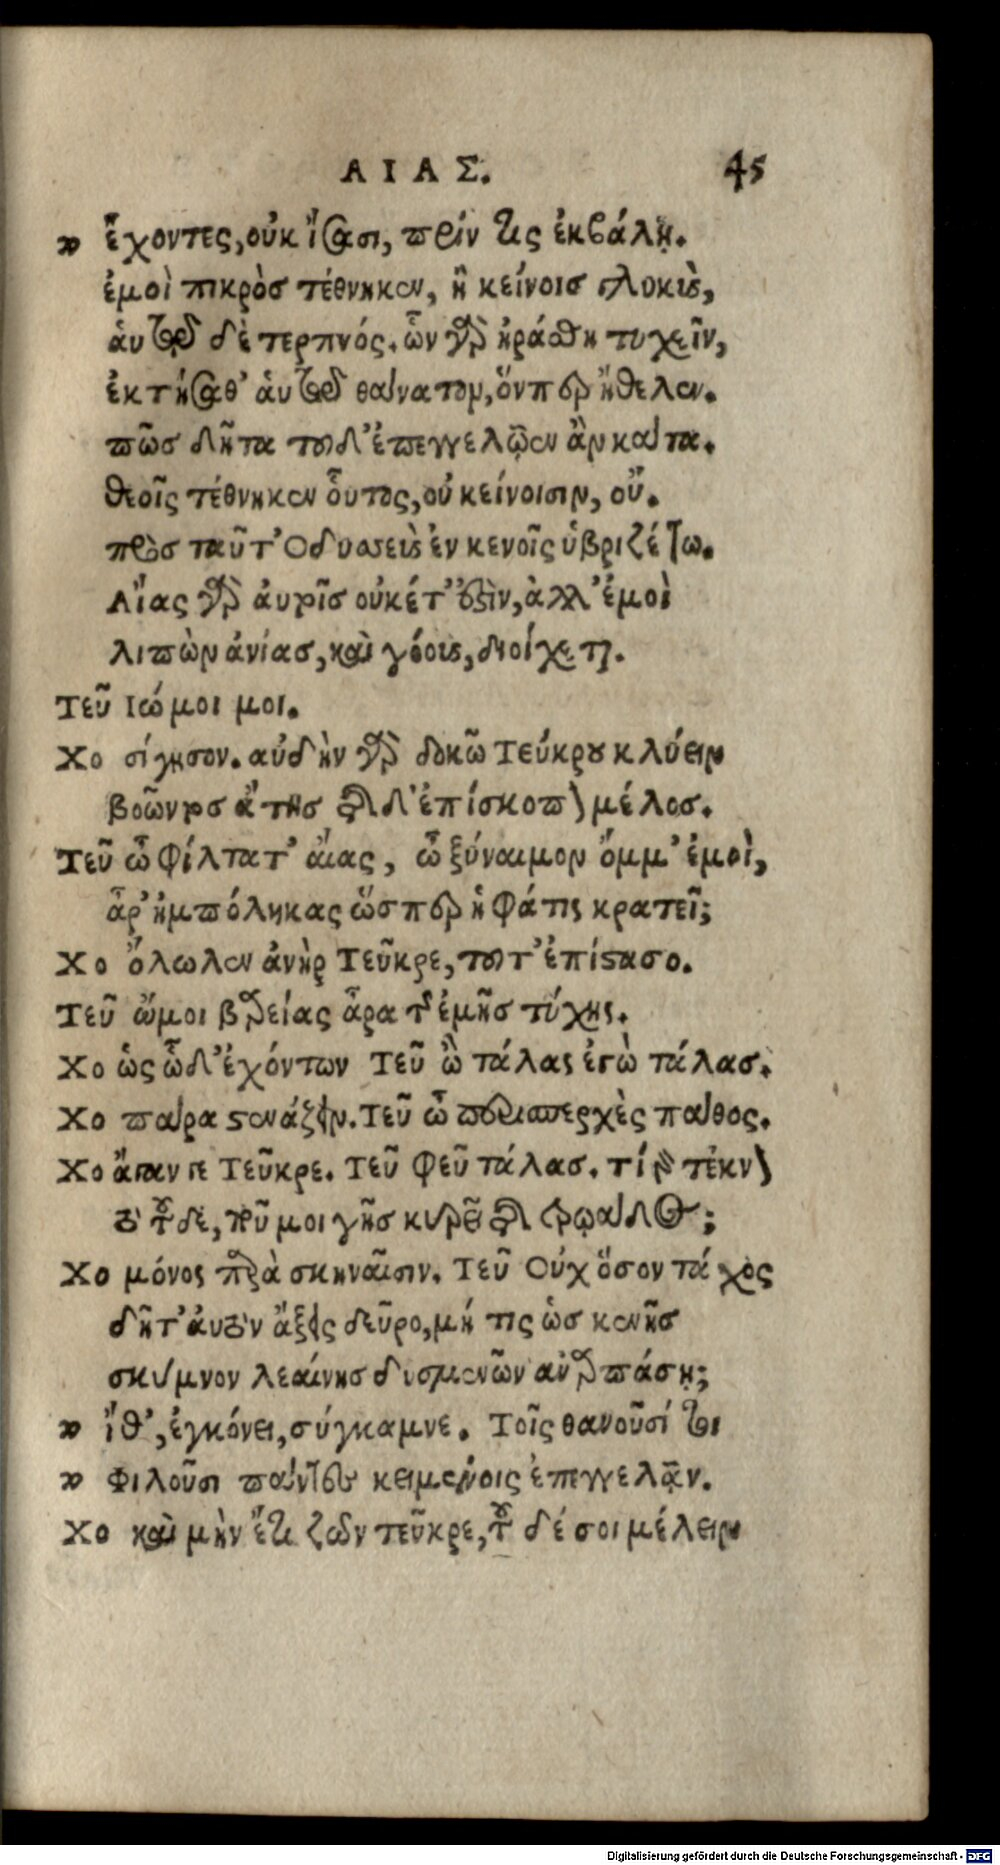 ΑΙΑΣ. 45
ἔχοντες, οὐκ ἴσασι, πρίν τις ἐκβάλῃ.
ἐμοὶ πικρὸς τέθνηκεν, ἢ κείνοις γλυκὺς,
ἁυτῷ δὲ τερπνός. ὧν γὰρ ἠράσθη τυχεῖν,
ἐκτήσαθ’ ἁυτῷ θάνατον, ὅνπερ ἤθελεν.
πῶς δῆτα τοῦδ’ ἐπεγγελῷεν ἂν κάτα.
θεοῖς τέθνηκεν οὗτος, οὐ κείνοισιν, οὔ.
πρὸς ταῦτ’ Οδυσσεὺς ἐν κενοῖς ὑβριζέτω.
Αἴας γὰρ ἀυτοῖς οὐκέτ’ ἐστὶν, ἀλλ’ ἐμοὶ
λιπὼν ἀνίας, καὶ γόους, διοίχεται.
Τεῦ Ιώ μοι μοι.
Χο σίγησον. αὐδὴν γὰρ δοκῶ Τεύκρου κλύειν
βοῶντος ἄτης τῆσδ’ ἐπίσκοπον μέλος.
Τεῦ ὦ φίλτατ’ ἄιας, ὦ ξύναιμον ὄμμ’ ἐμοὶ,
ἆρ’ ἠμπόληκας ὥσπερ ἡ φάτις κρατεῖ;
Χο ὄλωλεν ἀνὴρ Τεῦκρε, τοῦτ’ ἐπίστασο.
Τεῦ ὤμοι βαρείας ἆρα τῆς ἐμῆς τύχης.
Χο ὡς ὧδ’ ἐχόντων Τεῦ ὢ τάλας ἐγὼ τάλας.
Χο πάρα στενάζειν. Τεῦ ὦ περισπερχὲς πάθος.
Χο ἄγαν γε Τεῦκρε. Τεῦ φεῦ τάλας. τί γὰρ τέκνον
τὸ τοῦδε, ποῦ μοι γῆς κυρεῖ τῆς τρῳάδος;
Χο μόνος παρὰ σκηναῖσιν. Τεῦ Οὐχ ὅσον τάχος
δῆτ’ ἀυτὸν ἄξεις δεῦρο, μή τις ὡς κενῆς
σκύμνον λεαίνης δυσμενῶν ἀναρπάσῃ;
ἴθ’, ἐγκόνει, σύγκαμνε. Τοῖς θανοῦσί τοι
φιλοῦσι πάντες κειμένοις ἐπεγγελᾷν.
Χο καὶ μὴν ἔτι ζῶν τεῦκρε, τοῦδέ σοι μέλειν
Digitalisierung gefördert durch die Deutsche Forschungsgemeinschaft - DFG